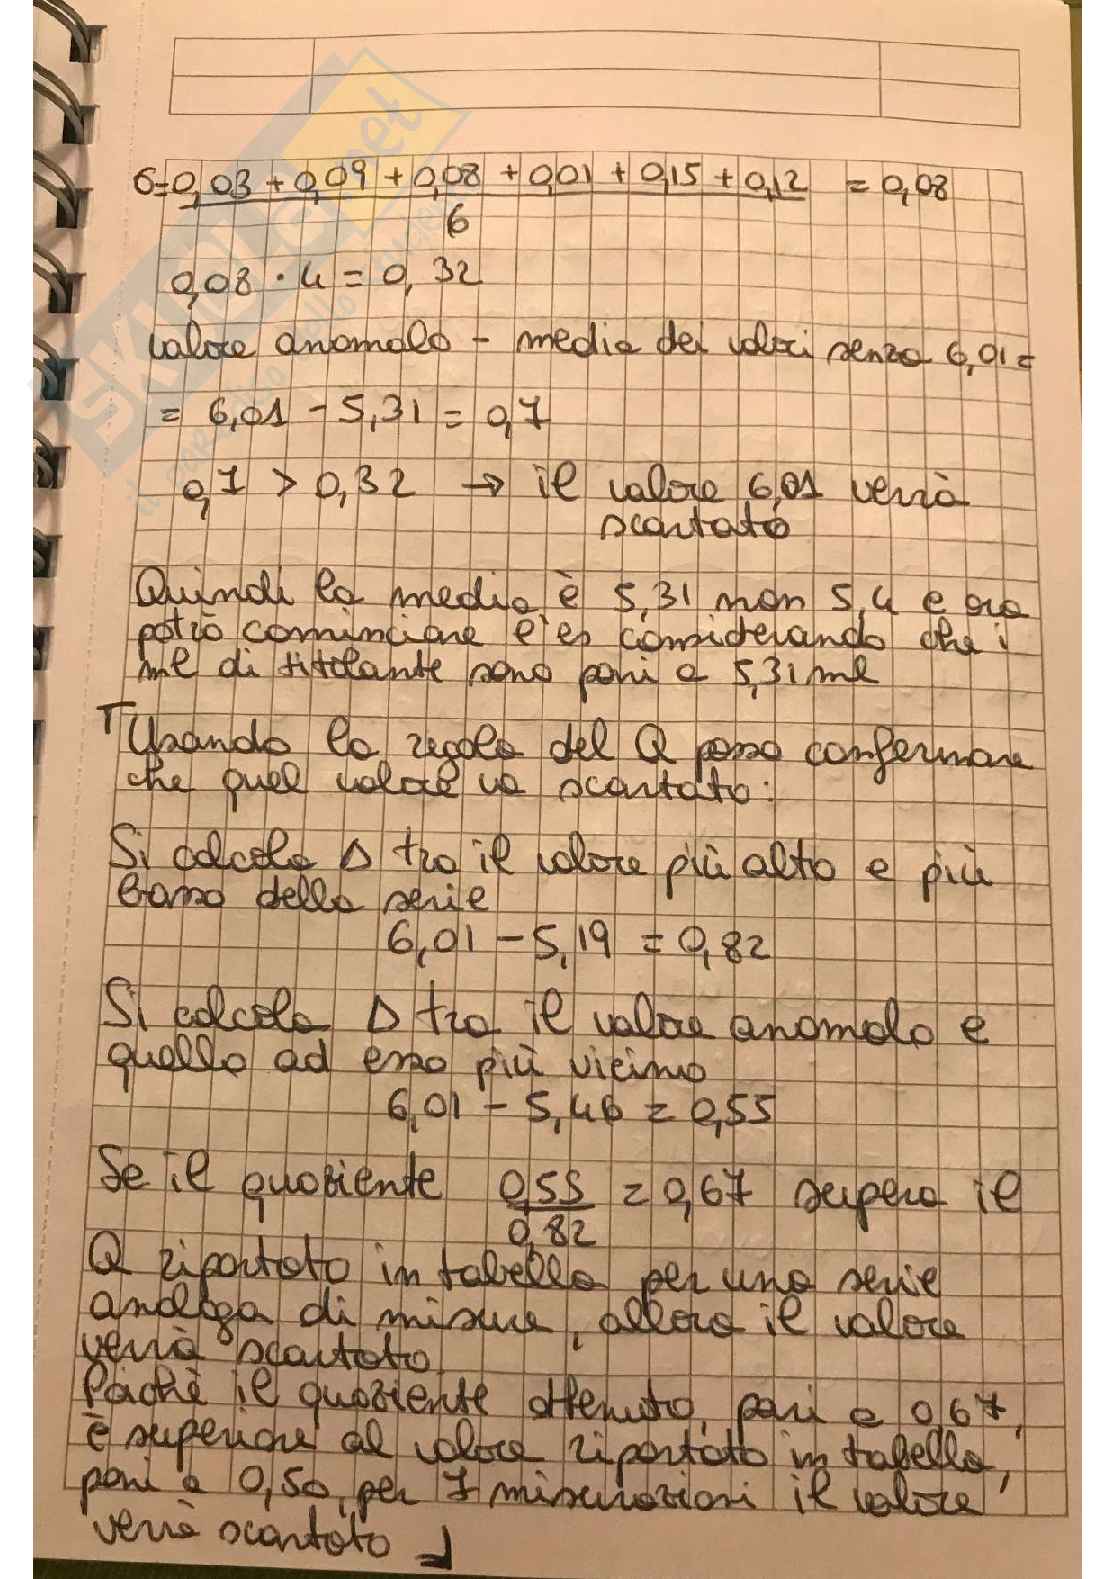 6=0,03+0,09+0,08+0,01+0,15+0,12 = 0,08
6
0,08 · 4 = 0,32
valore anomalo - media dei valori senza 6,01=
= 6,01 - 5,31 = 0,7
0,7 > 0,32 → il valore 6,01 verrà
scartato
Quindi la media è 5,31 non 5,4 e ora
potrò cominciare l'es considerando che i
ml di titolante sono pari a 5,31 ml
Usando la regola del Q posso confermare
che quel valore va scartato:
Si calcola Δ tra il valore più alto e più
basso della serie
6,01 - 5,19 = 0,82
Si calcola Δ tra il valore anomalo e
quello ad esso più vicino
6,01 - 5,46 = 0,55
Se il quoziente 0,55 = 0,67 supera il
0,82
Q riportato in tabella per una serie
analoga di misure, allora il valore
verrà scartato.
Poiché il quoziente ottenuto, pari a 0,67,
è superiore al valore riportato in tabella,
pari a 0,50, per 7 misurazioni il valore
verrà scartato